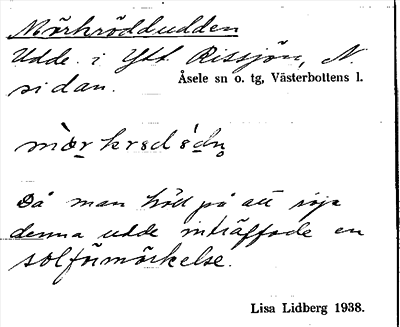 Mörkröddudden
Udde i Ytt. Rissjön, N.
sidan.
Åsele sn o. tg, Västerbottens l.
Då man höll på att röja
denna udde inträffade en
solförmörkelse.
Lisa Lidberg 1938.